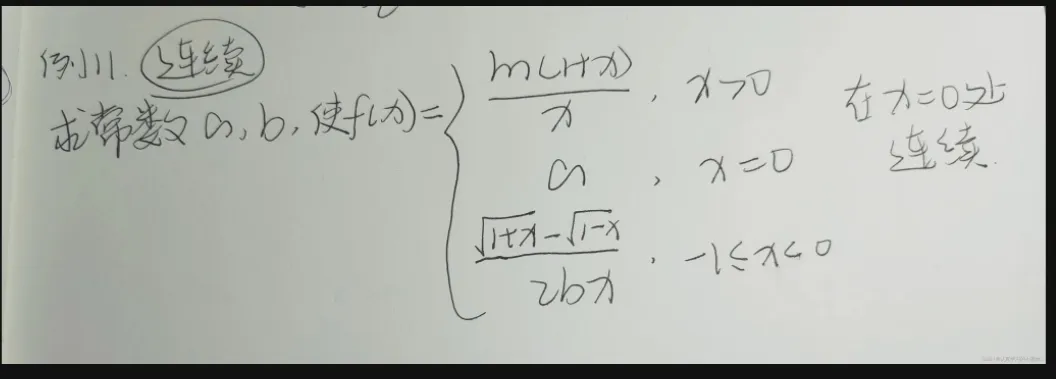 例11. 连续
求常数 a, b, 使f(x)= { ln(1+x)/x , x>0
a , x=0
(√1+x - √1-x)/2bx , -1≤x<0
在x=0处
连续.